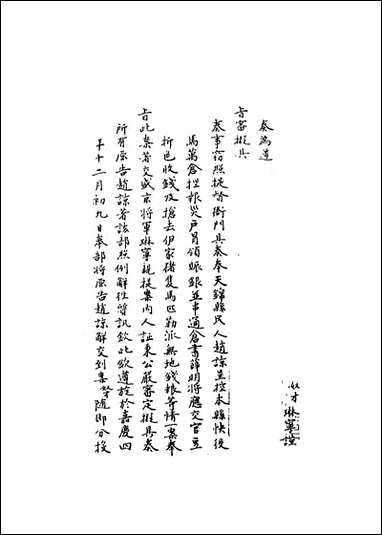 奴才琳寧謹
奏為遵
旨審擬具
奏事窃照提督衙門具奏奉天錦縣民人趙諒呈控本縣快役
馬萬倉捏報災戶冒領賑銀並串通倉書薛明將應交官豆
折色收錢及搶去伊家猪隻馬匹勒派無地錢粮等情一案奉
旨此案著交盛京將軍琳寧親提案內人証秉公嚴審定擬具奏
所有原告趙諒著該部照例解往質訊欽此欽遵旋於嘉慶四
年十二月初九日奉部將原告趙諒解交到案奴才隨即分投